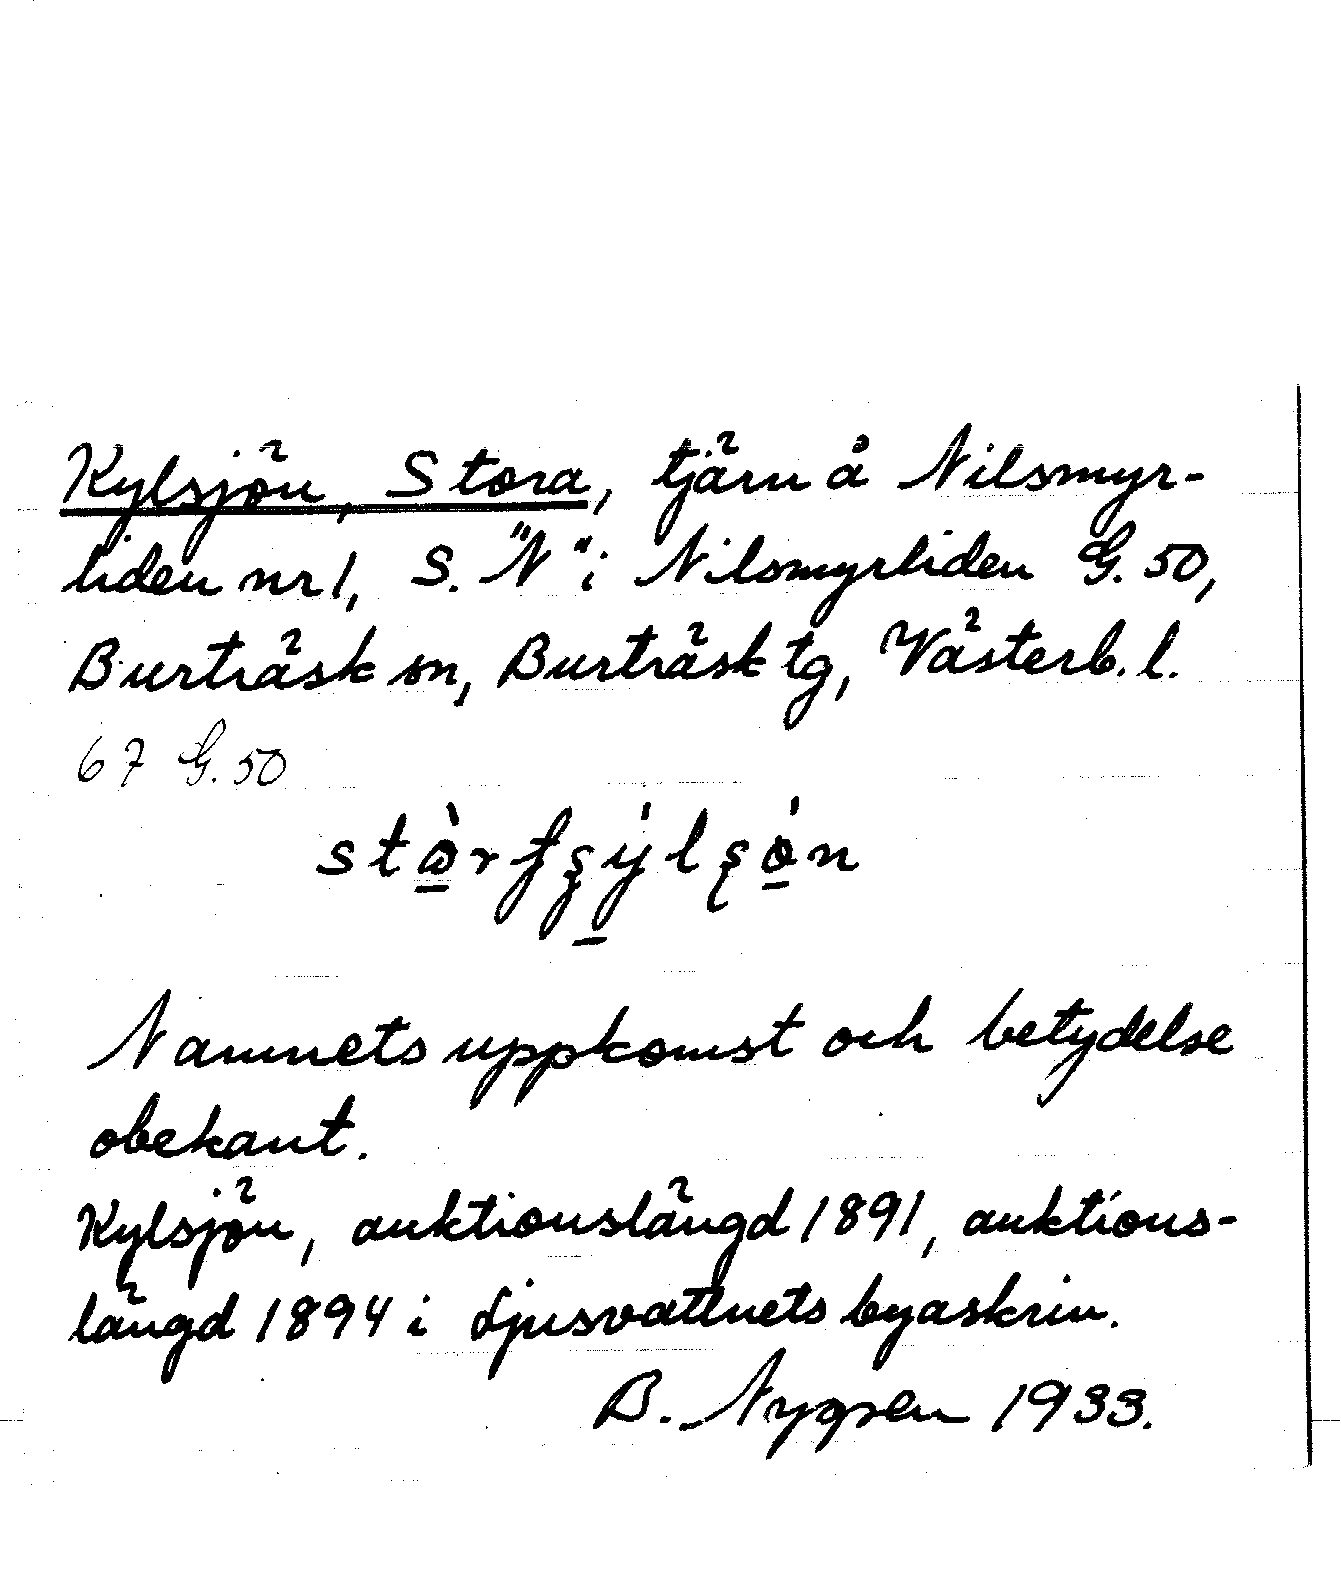 Kylsjön, Stora, tjärn å Nilsmyr-
liden nr 1, S. "N" i Nilsmyrliden G. 50,
Burträsk sn, Burträsk tg, Västerb. l.
67 G. 50
Namnets uppkomst och betydelse
obekant.
Kylsjön, auktionslängd 1891, auktions-
längd 1894 i Ljusvattnets byaskrin.
B. Nygren 1933.